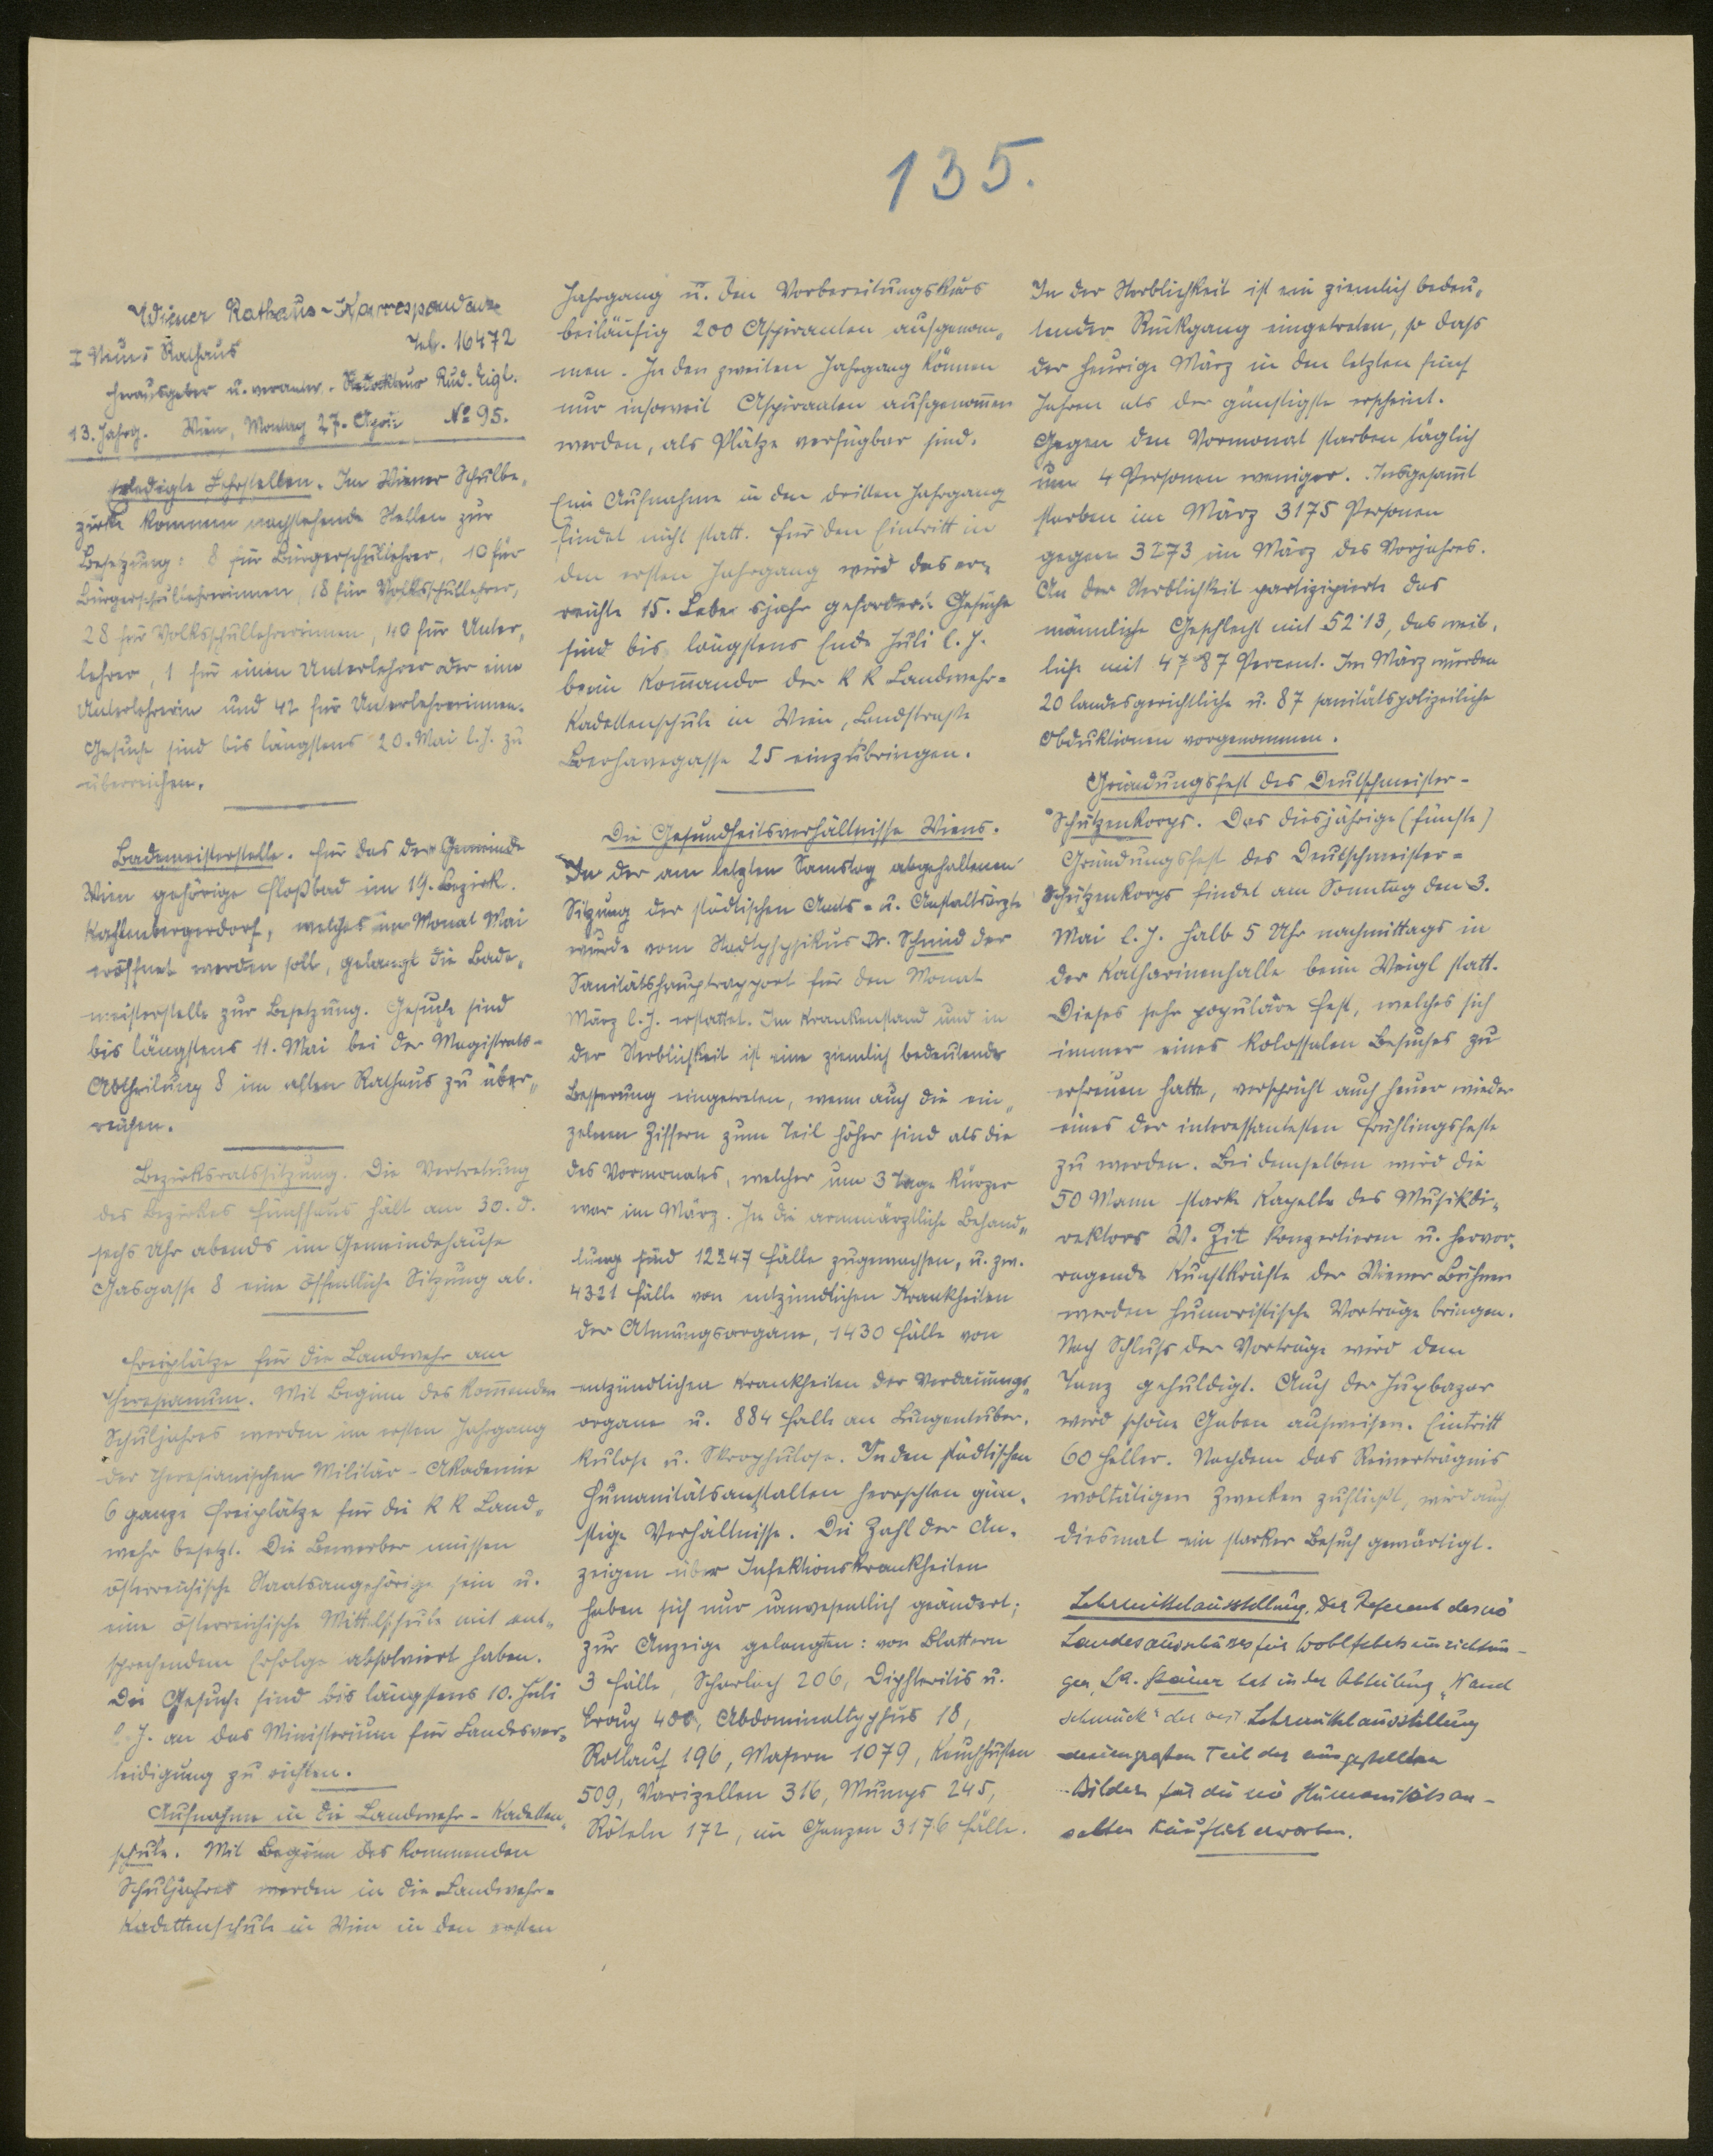 135.
Wiener Rathaus-Korrespondenz
I Neues Rathaus Tel. 16472
Herausgeber u. verantw. Redakteur Rud. Eigl.
13. Jahrg. Wien, Montag 27. April No 95.
Erledigte Lehrstellen. Im Wiener Schulbe-
zirke kommen nachstehende Stellen zur
Besetzung: 8 für Bürgerschullehrer, 10 für
Bürgerschullehrerinnen, 18 für Volksschullehrer,
28 für Volksschullehrerinnen, 40 für Unter-
lehrer, 1 für einen Unterlehrer oder eine
Unterlehrerin und 42 für Unterlehrerinnen.
Gesuche sind bis längstens 20. Mai l. J. zu
überreichen.
Bademeisterstelle. Für das der Gemeinde
Wien gehörige Floßbad im 19. Bezirk.
Kahlenbergerdorf, welches im Monat Mai
eröffnet werden soll, gelangt die Bade-
meisterstelle zur Besetzung. Gesuche sind
bis längstens 11. Mai bei der Magistrats-
Abtheilung 8 im alten Rathaus zu über-
reichen.
Bezirksratssitzung. Die Vertretung
des Bezirkes Fünfhaus hält am 30. d.
sechs Uhr abends im Gemeindehause
Gasgasse 8 eine öffentliche Sitzung ab.
Freiplätze für die Landwehr am
Theresianum. Mit Beginn des kommenden
Schuljahres werden im ersten Jahrgang
der Theresianischen Militär-Akademie
6 ganze Freiplätze für die k k Land-
wehr besetzt. Die Bewerber müssen
österreichische Staatsangehörige sein u.
eine österreichische Mittelschule mit ent-
sprechendem Erfolge absolviert haben.
Die Gesuche sind bis längstens 10. Juli
l. J. an das Ministerium für Landesver-
teidigung zu richten.
Aufnahme in die Landwehr-Kadetten-
schule. Mit Beginn des kommenden
Schuljahres werden in die Landwehr-
Kadettenschule in Wien in den ersten
Jahrgang u. den Vorbereitungskurs
beiläufig 200 Aspiranten aufgenom-
men. In den zweiten Jahrgang können
nur insoweit Aspiranten aufgenommen
werden, als Plätze verfügbar sind.
Eine Aufnahme in den dritten Jahrgang
findet nicht statt. Für den Eintritt in
den ersten Jahrgang wird das er-
reichte 15. Lebensjahr gefordert. Gesuche
sind bis längstens Ende Juli l. J.
beim Kommando der k k Landwehr-
Kadettenschule in Wien, Landstraße
Boerhavegasse 25 einzubringen.
Die Gesundheitsverhältnisse Wiens.
In der am letzten Samstag abgehaltenen
Sitzung der städtischen Amts- u. Anstaltsärzte
wurde vom Stadtphysikus Dr. Schmid der
Sanitätshauptrapport für den Monat
März l. J. erstattet. Im Krankenstand und in
der Sterblichkeit ist eine ziemlich bedeutende
Besserung eingetreten, wenn auch die ein-
zelnen Ziffern zum Teil höher sind als die
des Vormonates, welcher um 3 Tage kürzer
war im März. In die armenärztliche Behand-
lung sind 12247 Fälle zugewachsen, u. zw.
4321 Fälle von entzündlichen Krankheiten
der Atmungsorgane, 1430 Fälle von
entzündlichen Krankheiten der Verdauungs-
organe u. 884 Fälle an Lungentuber-
kulose u. Skrophulose. In den städtischen
Humanitätsanstalten herrschten gün-
stige Verhältnisse. Die Zahl der An-
zeigen über Infektionskrankheiten
haben sich nur unwesentlich geändert;
zur Anzeige gelangten: von Blattern
3 Fälle, Scharlach 206, Diphteritis u.
Croup 400, Abdominaltyphus 18,
Rotlauf 196, Masern 1079, Keuchhusten
509, Varizellen 316, Mumps 245,
Röteln 172, im Ganzen 3176 Fälle.
In der Sterblichkeit ist ein ziemlich bedeu-
tender Rückgang eingetreten, so dass
der heurige März in den letzten fünf
Jahren als der günstigste erscheint.
Gegen den Vormonat starben täglich
um 4 Personen weniger. Insgesamt
starben im März 3175 Personen
gegen 3273 im März des Vorjahres.
An der Sterblichkeit partizipierte das
männliche Geschlecht mit 52·13, das weib-
liche mit 47·87 Percent. Im März wurden
20 landesgerichtliche u. 87 sanitätspolizeiliche
Obduktionen vorgenommen.
Gründungsfest des Deutschmeister-
Schützenkorps. Das diesjährige (fünfte)
Gründungsfest des Deutschmeister-
Schützenkorps findet am Sonntag den 3.
Mai l. J. halb 5 Uhr nachmittags in
der Katharinenhalle beim Weigl statt.
Dieses sehr populäre Fest, welches sich
immer eines kolossalen Besuches zu
erfreuen hatte, verspricht auch heuer wieder
eines der interessantesten Frühlingsfeste
zu werden. Bei demselben wird die
50 Mann starke Kapelle des Musikdi-
rektors W. Zit konzertieren u. hervor-
ragende Kunstkräfte der Wiener Bühnen
werden humoristische Vorträge bringen.
Nach Schluss der Vorträge wird dem
Tanz gehuldigt. Auch der Juxbazar
wird schöne Gaben aufweisen. Eintritt
60 Heller. Nachdem das Reinerträgnis
woltätigen Zwecken zufließt, wird auch
diesmal ein starker Besuch gewärtigt.
Lehrmittelausstellung. Der Referent des nö
Landesausschusses für Wohlfahrtseinrichtun-
gen, LA. Steiner hat in der Abteilung „Wand
schmuck" der Lehrmittelausstellung
den größten Teil der ausgestellten
Bilder für die nö Humanitätsan-
stalten käuflich erworben.